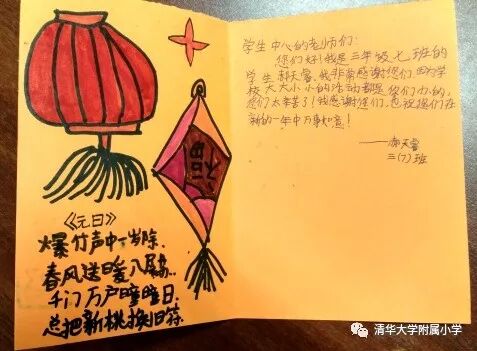 福
《元日》
爆竹声中一岁除
春风送暖入屠苏.
千门万户曈曈日
总把新桃换旧符.
学生中心的老师们：
您们好！我是三年级七班的
学生郝天睿，我非常感谢您们，因为学
校大大小小的活动都是您们办的，
您们太辛苦了！我感谢您们，也祝您们在
新的一年中万事如意！
——郝天睿
三(7)班
清华大学附属小学